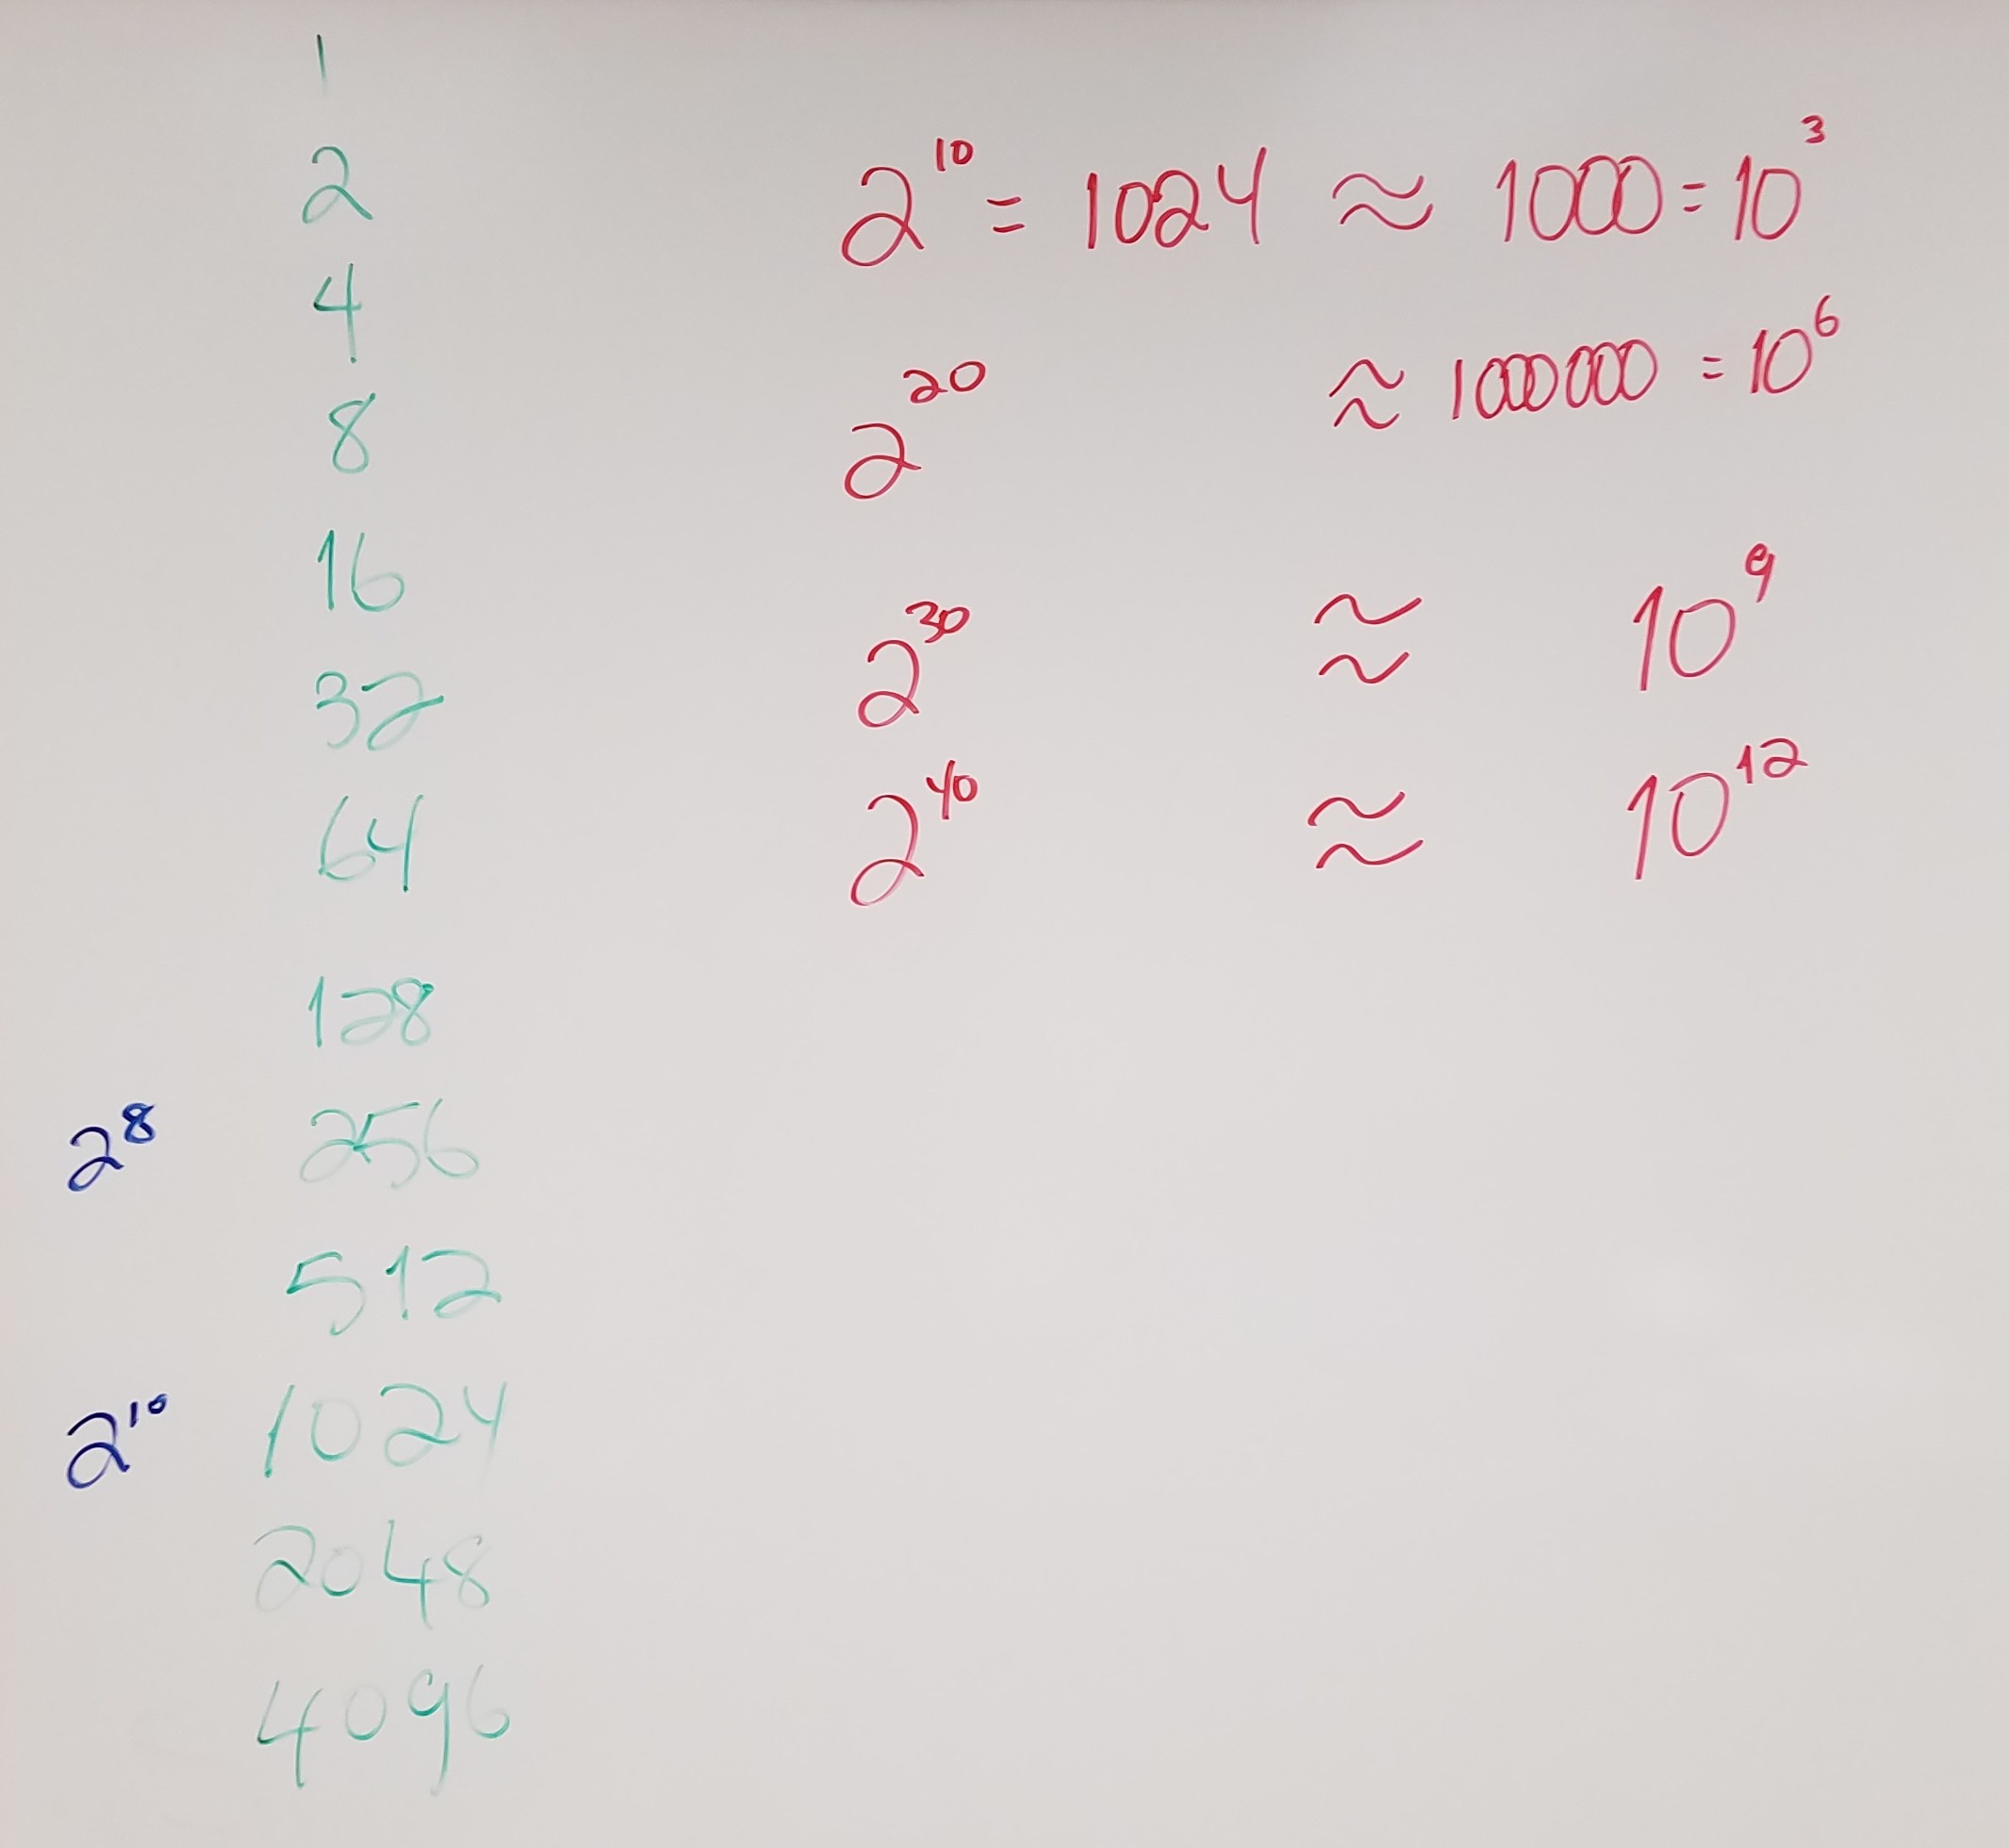 1
2
4
8
16
32
64
128
2⁸ 256
512
2¹⁰ 1024
2048
4096
2¹⁰ = 1024 ≈ 1000 = 10³
2²⁰ ≈ 1000000 = 10⁶
2³⁰ ≈ 10⁹
2⁴⁰ ≈ 10¹²